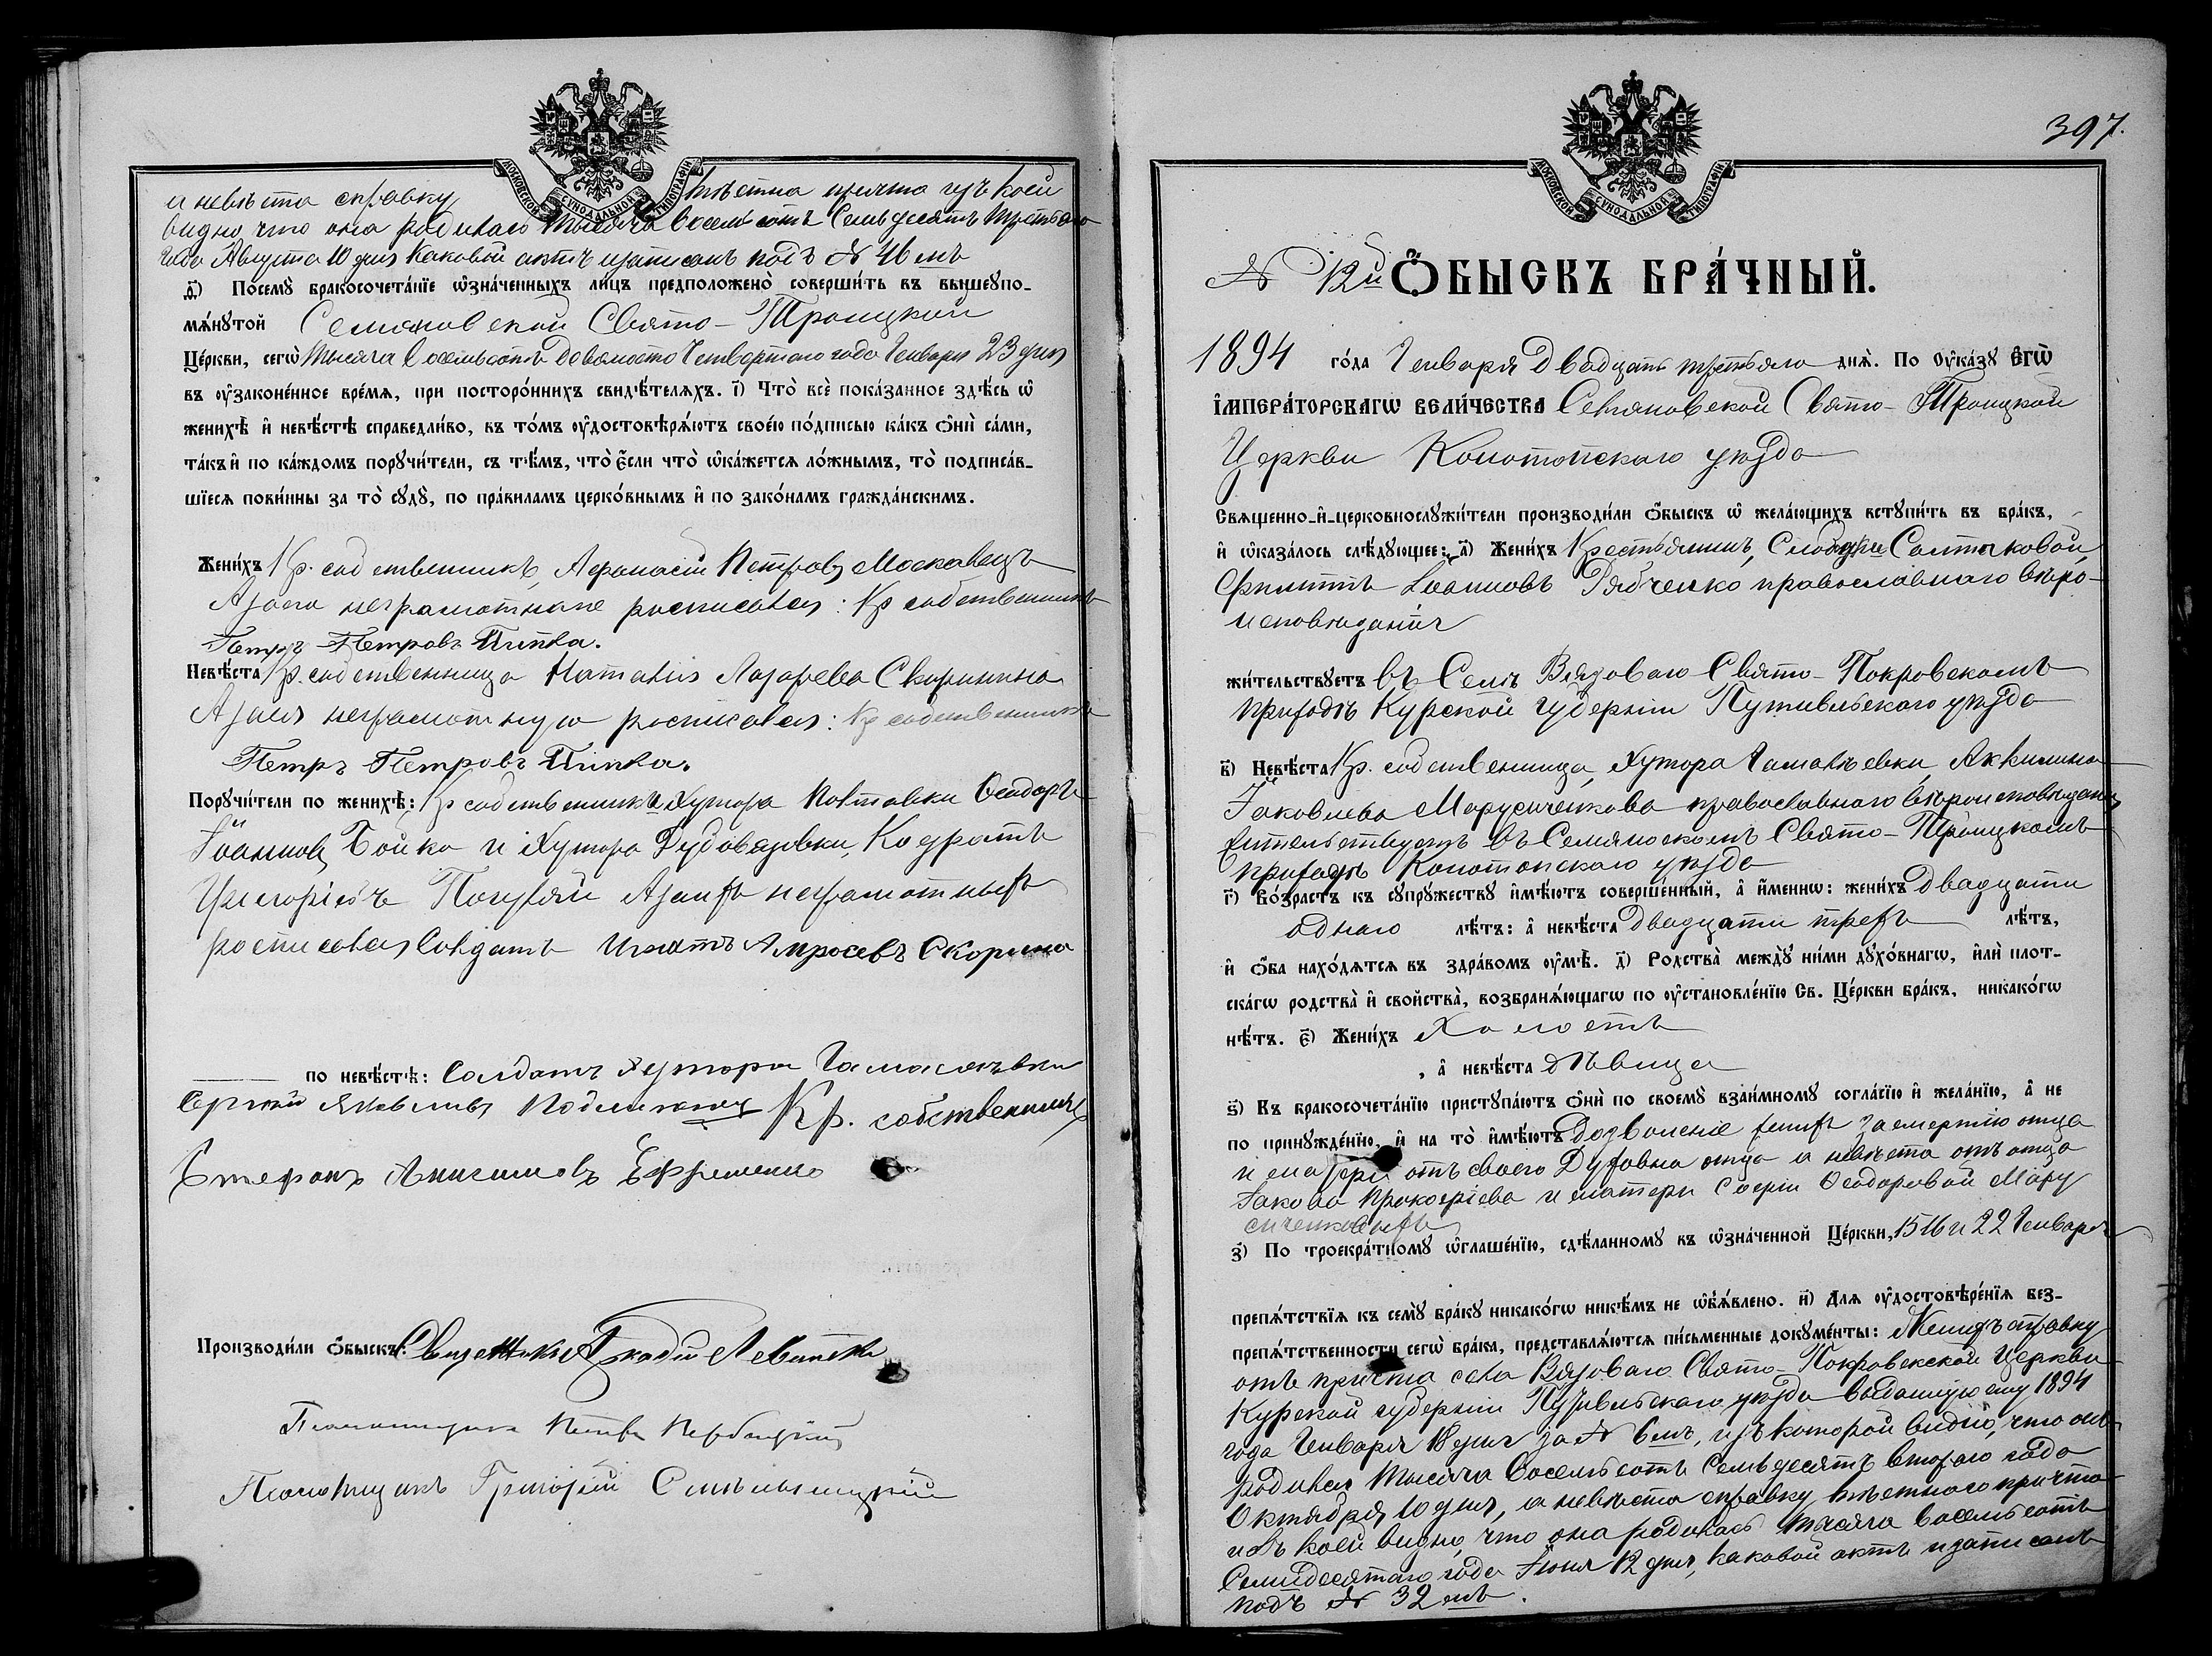 МОСКОВСКОЙ СѴНОДАЛЬНОЙ ТИПОГРАФІИ
а невѣста справку мѣстна причта изъ коей
видно, что она родилась тысяча восемьсотъ Семьдесятъ третьяго
года Августа 10 дня каковой актъ и записанъ подъ № 46мъ
д҃і) Посемꙋ̀ бракосочета́нїе ѡ҆зна́ченныхъ ли́цъ предположено̀ соверши́ть въ вышеупо-
мѧ́нꙋтой Семяновской Свято-Троицкой
Це́ркви, сегѡ̀ тысяча восемьсотъ девяносто четвертого года Генваря 23 дня
въ ᲂу҆законе́нное вре́мѧ, при посторо́ннихъ свидѣ́телѧхъ. і҃) Что̀ всѐ пока́занное здѣ́сь ѡ҆
женихѣ̀ и҆ невѣ́стѣ справедли́во, въ то́мъ ᲂу҆достовѣрѧ́ютъ свое́ю по́дписью ка́къ ѻ҆нѝ са́ми,
та́къ и҆ по ка́ждомъ порꙋчи́тели, съ тѣ́мъ, что̀ є҆́сли что̀ ѡ҆ка́жетсѧ ло́жнымъ, то̀ подписа́в-
шїесѧ пови́нны за то̀ сꙋдꙋ̀, по пра́виламъ церко́внымъ и҆ по зако́намъ гражда́нскимъ.
Жени́хъ Кр. собственникъ, Афанасій Петровъ Москавецъ
А за него неграмотнаго росписався: Кр собственникъ
Петръ Петровъ Пипка.
Невѣ́ста Кр. собственница Наталия Лазарева Скоринина
А за нея неграмотную росписався: Кр собственникъ
Петръ Петровъ Пипка.
Порꙋчи́тели по женихѣ̀: Кр собственникъ Хутора Полтавки Ѳеодоръ
Іоанновъ Бойко и Хутора Дубовязовки, Кодратъ
Григоріевъ А за нихъ неграмотныхъ
росписався Солдатъ Игнатъ Амросевъ Скорина
по невѣ́стѣ: Солдатъ Хутора Гамалѣевки
Сергѣй Яковлевъ Кр. собственникъ
Стефанъ Анисимовъ Ефременко
Производи́ли ѻ҆́быскъ: Священникъ Аркадій Левитскій
Псаломщикъ
Псаломщикъ Григорій
397.
МОСКОВСКОЙ СѴНОДАЛЬНОЙ ТИПОГРАФІИ
№ 12й Ѻ҆́БЫСКЪ БРА́ЧНЫЙ.
1894 го́да Генваря двадцать третьяго днѧ̀. По ᲂу҆ка́зꙋ Е҆гѡ̀
І҆мпера́торскагѡ вели́чества Семяновской Свято-Троицкой
Церкви Конотопскаго уѣзда
Свѧщенно-и҆-церковнослꙋжи́тели производи́ли ѻ҆́быскъ ѡ҆ жела́ющихъ встꙋпи́ть въ бра́къ,
и҆ ѡ҆каза́лось слѣ́дꙋющее: а҃) Жени́хъ Крестьянинъ, Слободы Салтыковой,
Филиппъ Іоанновъ Рябченко православнаго вѣро-
исповѣданія
жи́тельствꙋетъ въ Селѣ Вязоваго Свято-Покровскомъ
приходѣ Курской губерніи Путивльскаго уѣзда
в҃) Невѣ́ста Кр. собственница, Хутора Гамалѣевки, Акилина
Іаковлева Марусиченкова православнаго вѣроисповѣданія
жительствуетъ въ Семяноскомъ Свято-Троицкомъ
приходѣ Конотопскаго уѣзда
г҃) Во́зрастъ къ сꙋпрꙋ́жествꙋ и҆мѣ́ютъ соверше́нный, а҆ и҆́меннѡ: жени́хъ двадцати
однаго лѣ́тъ: а҆ невѣ́ста двадцати трехъ лѣ́тъ,
и҆ ѻ҆́ба нахо́дѧтсѧ въ здра́вомъ ᲂу҆мѣ̀. д҃) Родства̀ междꙋ̀ ни́ми дꙋхо́внагѡ, и҆лѝ плот-
ска́гѡ родства̀ и҆ свойства̀, возбранѧ́ющагѡ по ᲂу҆становле́нїю Св. Це́ркви бра́къ, никако́гѡ
нѣ́тъ. є҃) Жени́хъ холостъ
, а҆ невѣ́ста дѣвица
ѕ҃) Къ бракосочета́нїю пристꙋпа́ютъ ѻ҆нѝ по своемꙋ̀ взаи́мномꙋ согла́сїю и҆ жела́нїю, а҆ не
по принꙋжде́нїю, и҆ на то̀ и҆мѣ́ютъ дозволеніе женихъ за смертію отца
и матери отъ своего Духовна отца а невѣста отъ отца
Іакова Прокофіева и матери Софіи Ѳеодоровой Мару
сиченковыхъ
з҃) По троекра́тномꙋ ѡ҆глаше́нїю, сдѣ́ланномꙋ въ ѡ҆зна́ченной Це́ркви, 15 16 и 22 Генваря
препѧ́тствїѧ къ семꙋ̀ бра́кꙋ никако́гѡ никѣ́мъ не ѡ҆б̾ѧ́влено. и҃) Для ᲂу҆достовѣре́нїѧ без-
препѧ́тственности сегѡ̀ бра́ка, представлѧ́ютсѧ пи́сьменные докꙋме́нты: Женихъ справку
отъ причта села Вязоваго Свято-Покровской церкви
Курской губерніи Путивльскаго уѣзда выданную ему 1894
года Генваря 18 дня за № 6мъ, изъ которой видно, что онъ
родился тысяча восемьсотъ семьдесятъ втораго года
Октября 10 дня, а невѣста справку мѣстнаго причта
изъ коей видно, что она родилась тысяча восемьсотъ
Семидесятаго года Іюня 12 дня, каковой актъ и записанъ
подъ № 32мъ.